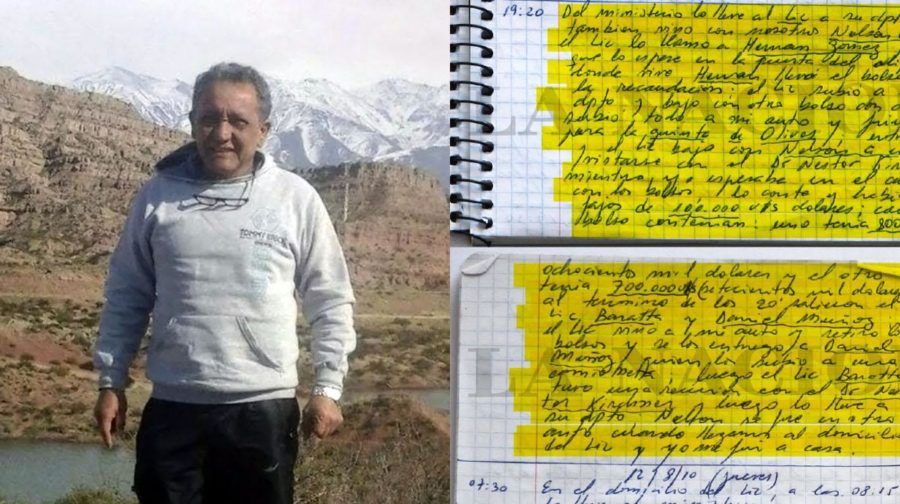 TOMMY
19:20 Del ministerio lo lleve al Lic a su dpto
tambien vino con nosotros Nelson
el Lic lo llamo a Hernan Gomez
que lo espere en la puerta del
donde vive Hernan llevó el bolso
la recaudación: el Lic subió a
dpto y bajo con otro bolso con
subio todo a mi auto y
para la quinta de Olivos
el Lic bajo con Nelson a
con el Dr Nestor
mientras yo esperaba en el
con los bolsos
de 100.000 U$S dolares,
bolso contenian: uno tenia 800
LA NACION
ochocientos mil dolares y el otro
tenia 700.000 U$S (setecientos mil dolares
al termino de los 20' salieron el
Lic Baratta y Daniel Muñoz
el Lic vino a mi auto y retiro
bolsos y se los entrego a Daniel
Muñoz quien los subio a una
camioneta luego el Lic Baratta
tuvo una reunion con el Dr Nes
tor Kirchner luego lo lleve a
su dpto Nelson se fue en otro
auto cuando llegamos al domicilio
del Lic y yo me fui a casa.
LA NACION
12/8/10 (jueves)
07:30 En el domicilio del Lic, a las 08.15